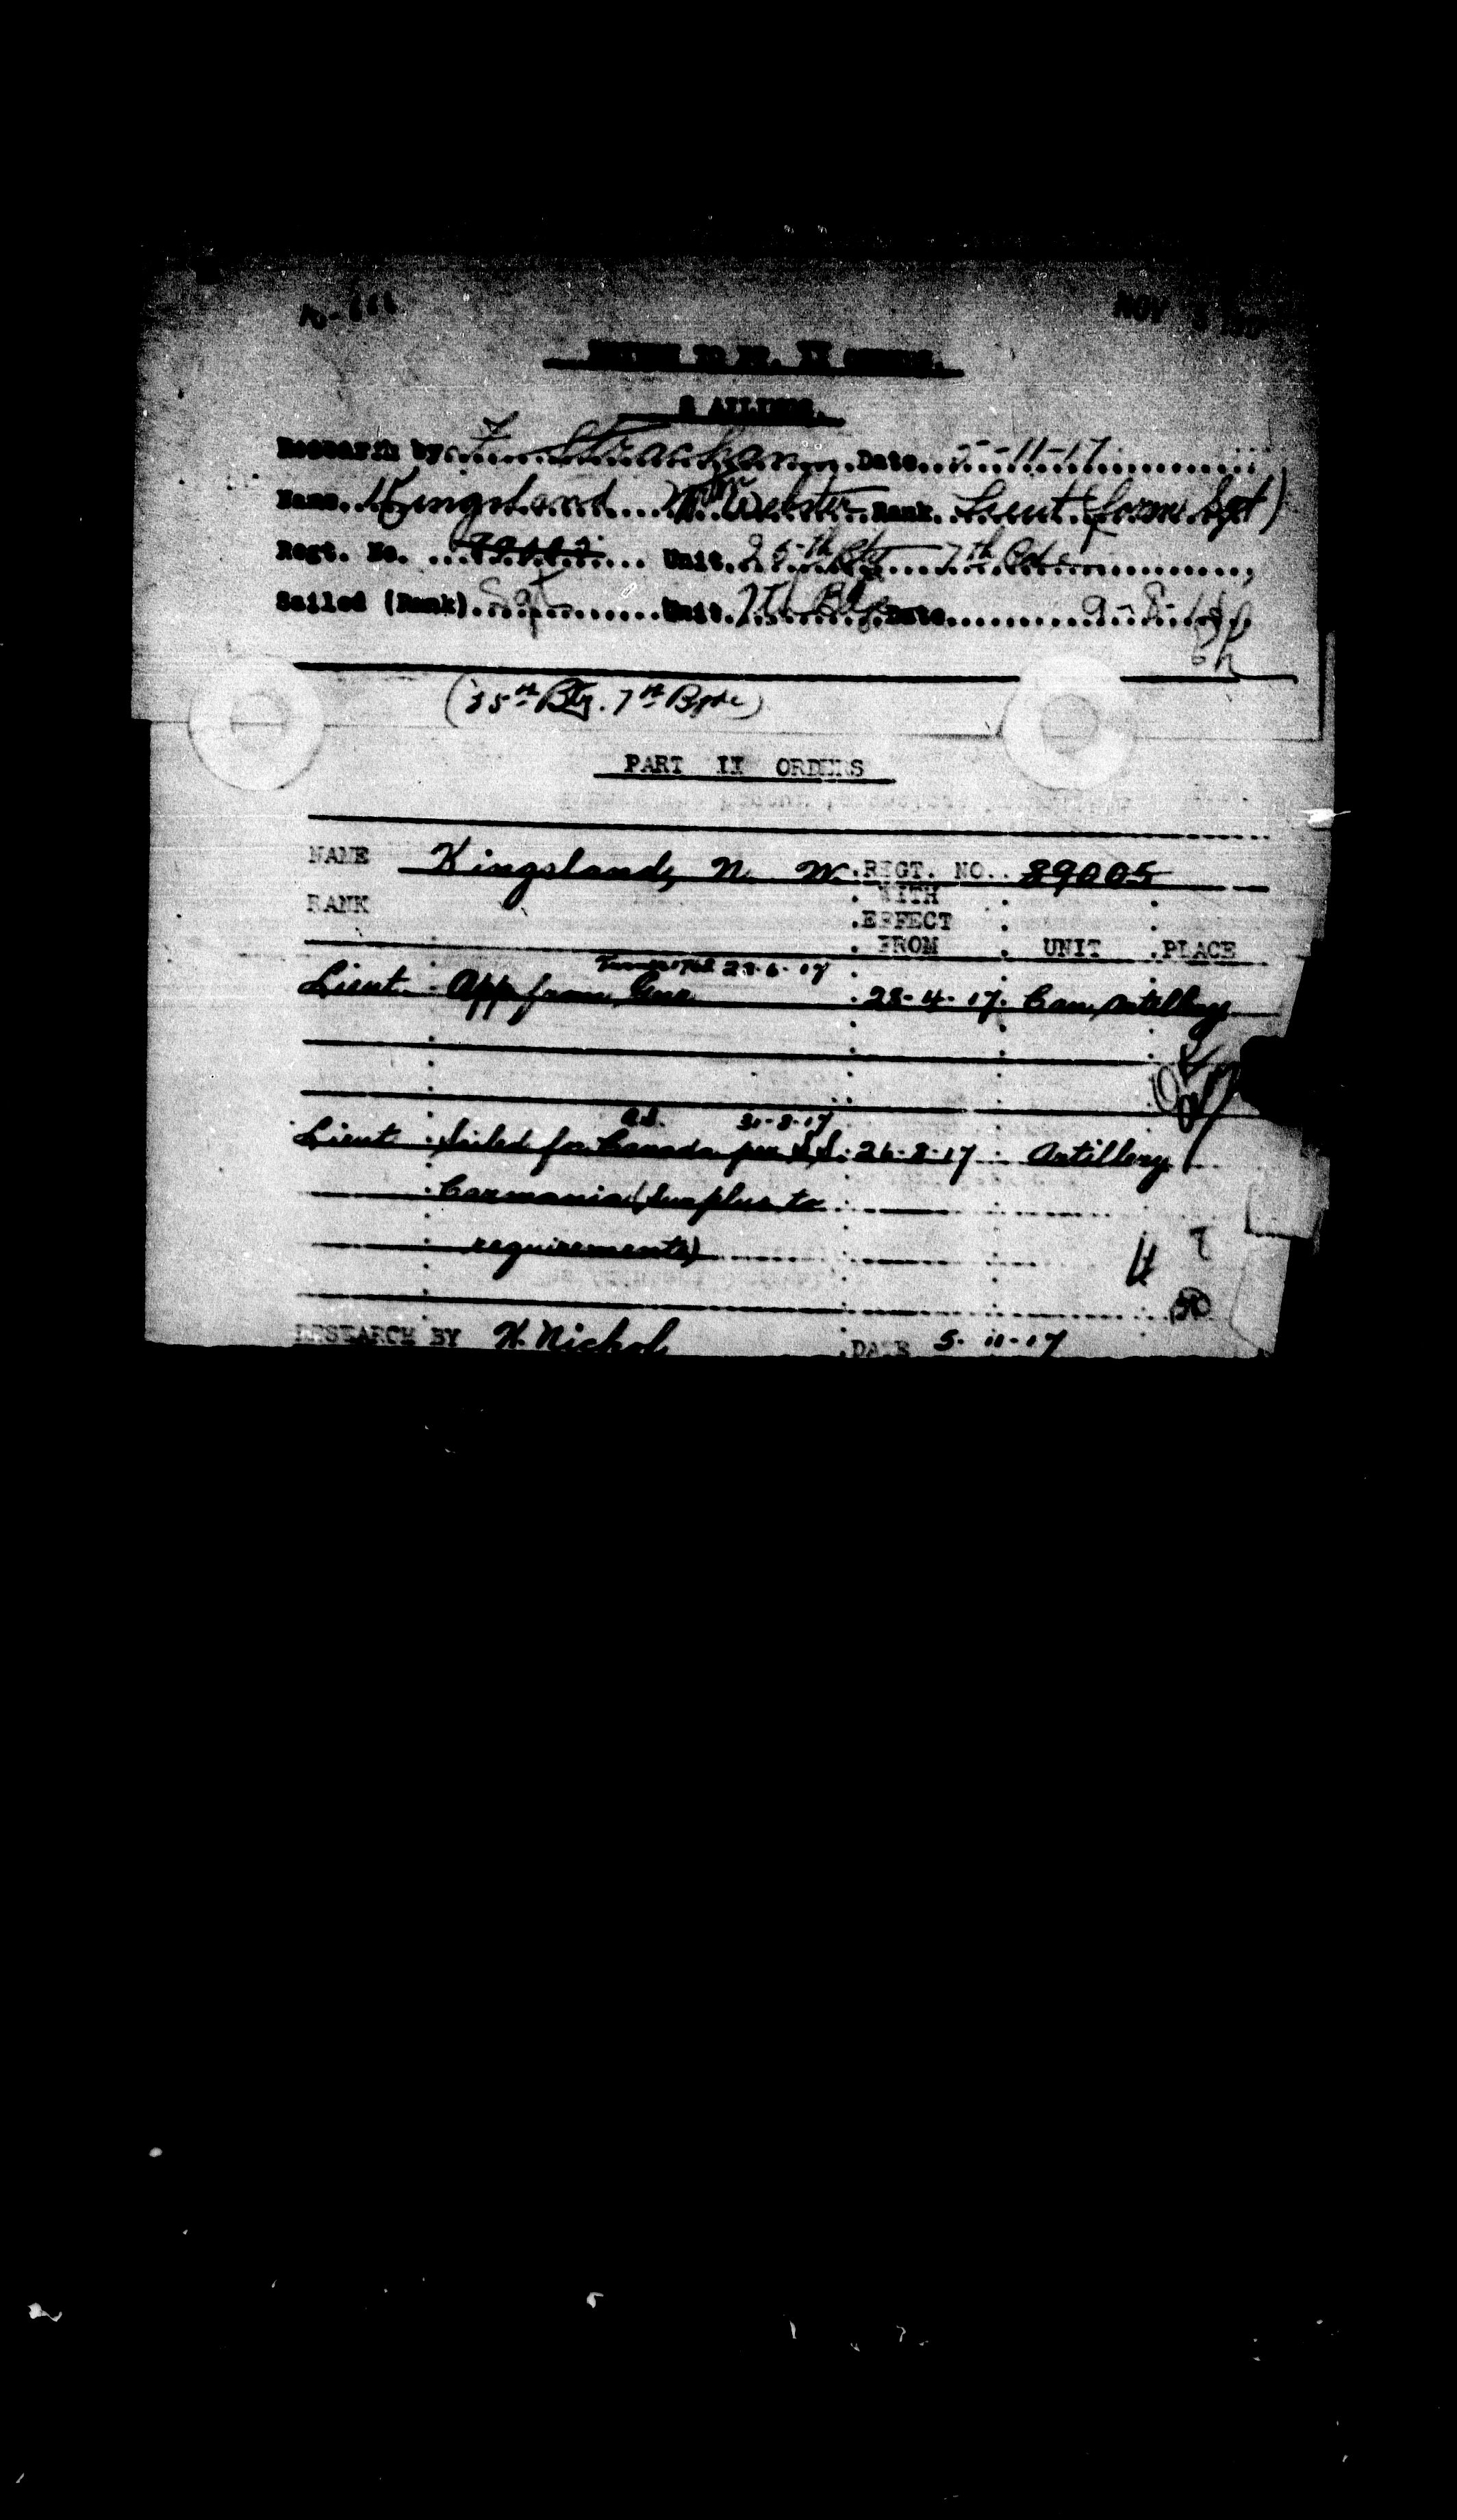 10-111
NOV
RETURN TO PT. II ORDERS.
SAILINGS.
Research by F. Strachan Date 5-11-17
Name Kingsland Webster Rank Lieut (form Sgt)
Regt. No. Unit 25th Bty 7th Bde
Sailed (Rank) Sgt Unit 7th Bde Date 9-8-
(25th Bty. 7th Bgde)
PART II ORDERS
NAME Kingsland, N. W. REGT. NO. 89005
RANK WITH EFFECT FROM UNIT PLACE
28-6-17
Lieut. App from 28-4-17. Can Artillery
31-8-17
Lieut Sailed for Canada per S.S. 26-8-17 Artillery
Carmania (Surplus to
requirements)
RESEARCH BY H. Nichol DATE 5-11-17